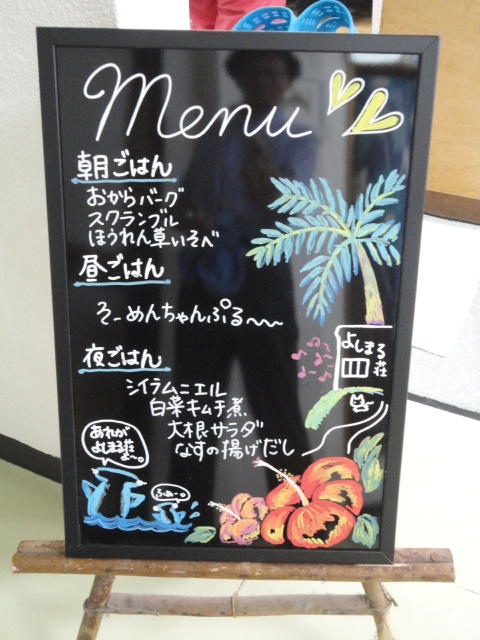 Menu
朝ごはん
おからバーグ
スクランブル
ほうれん草いそべ
昼ごはん
そーめんちゃんぷる〜〜
夜ごはん
シイラムニエル
白菜キムチ煮
大根サラダ
なすの揚げだし
よしまる
荘
あれが
よしまる荘
よ〜。